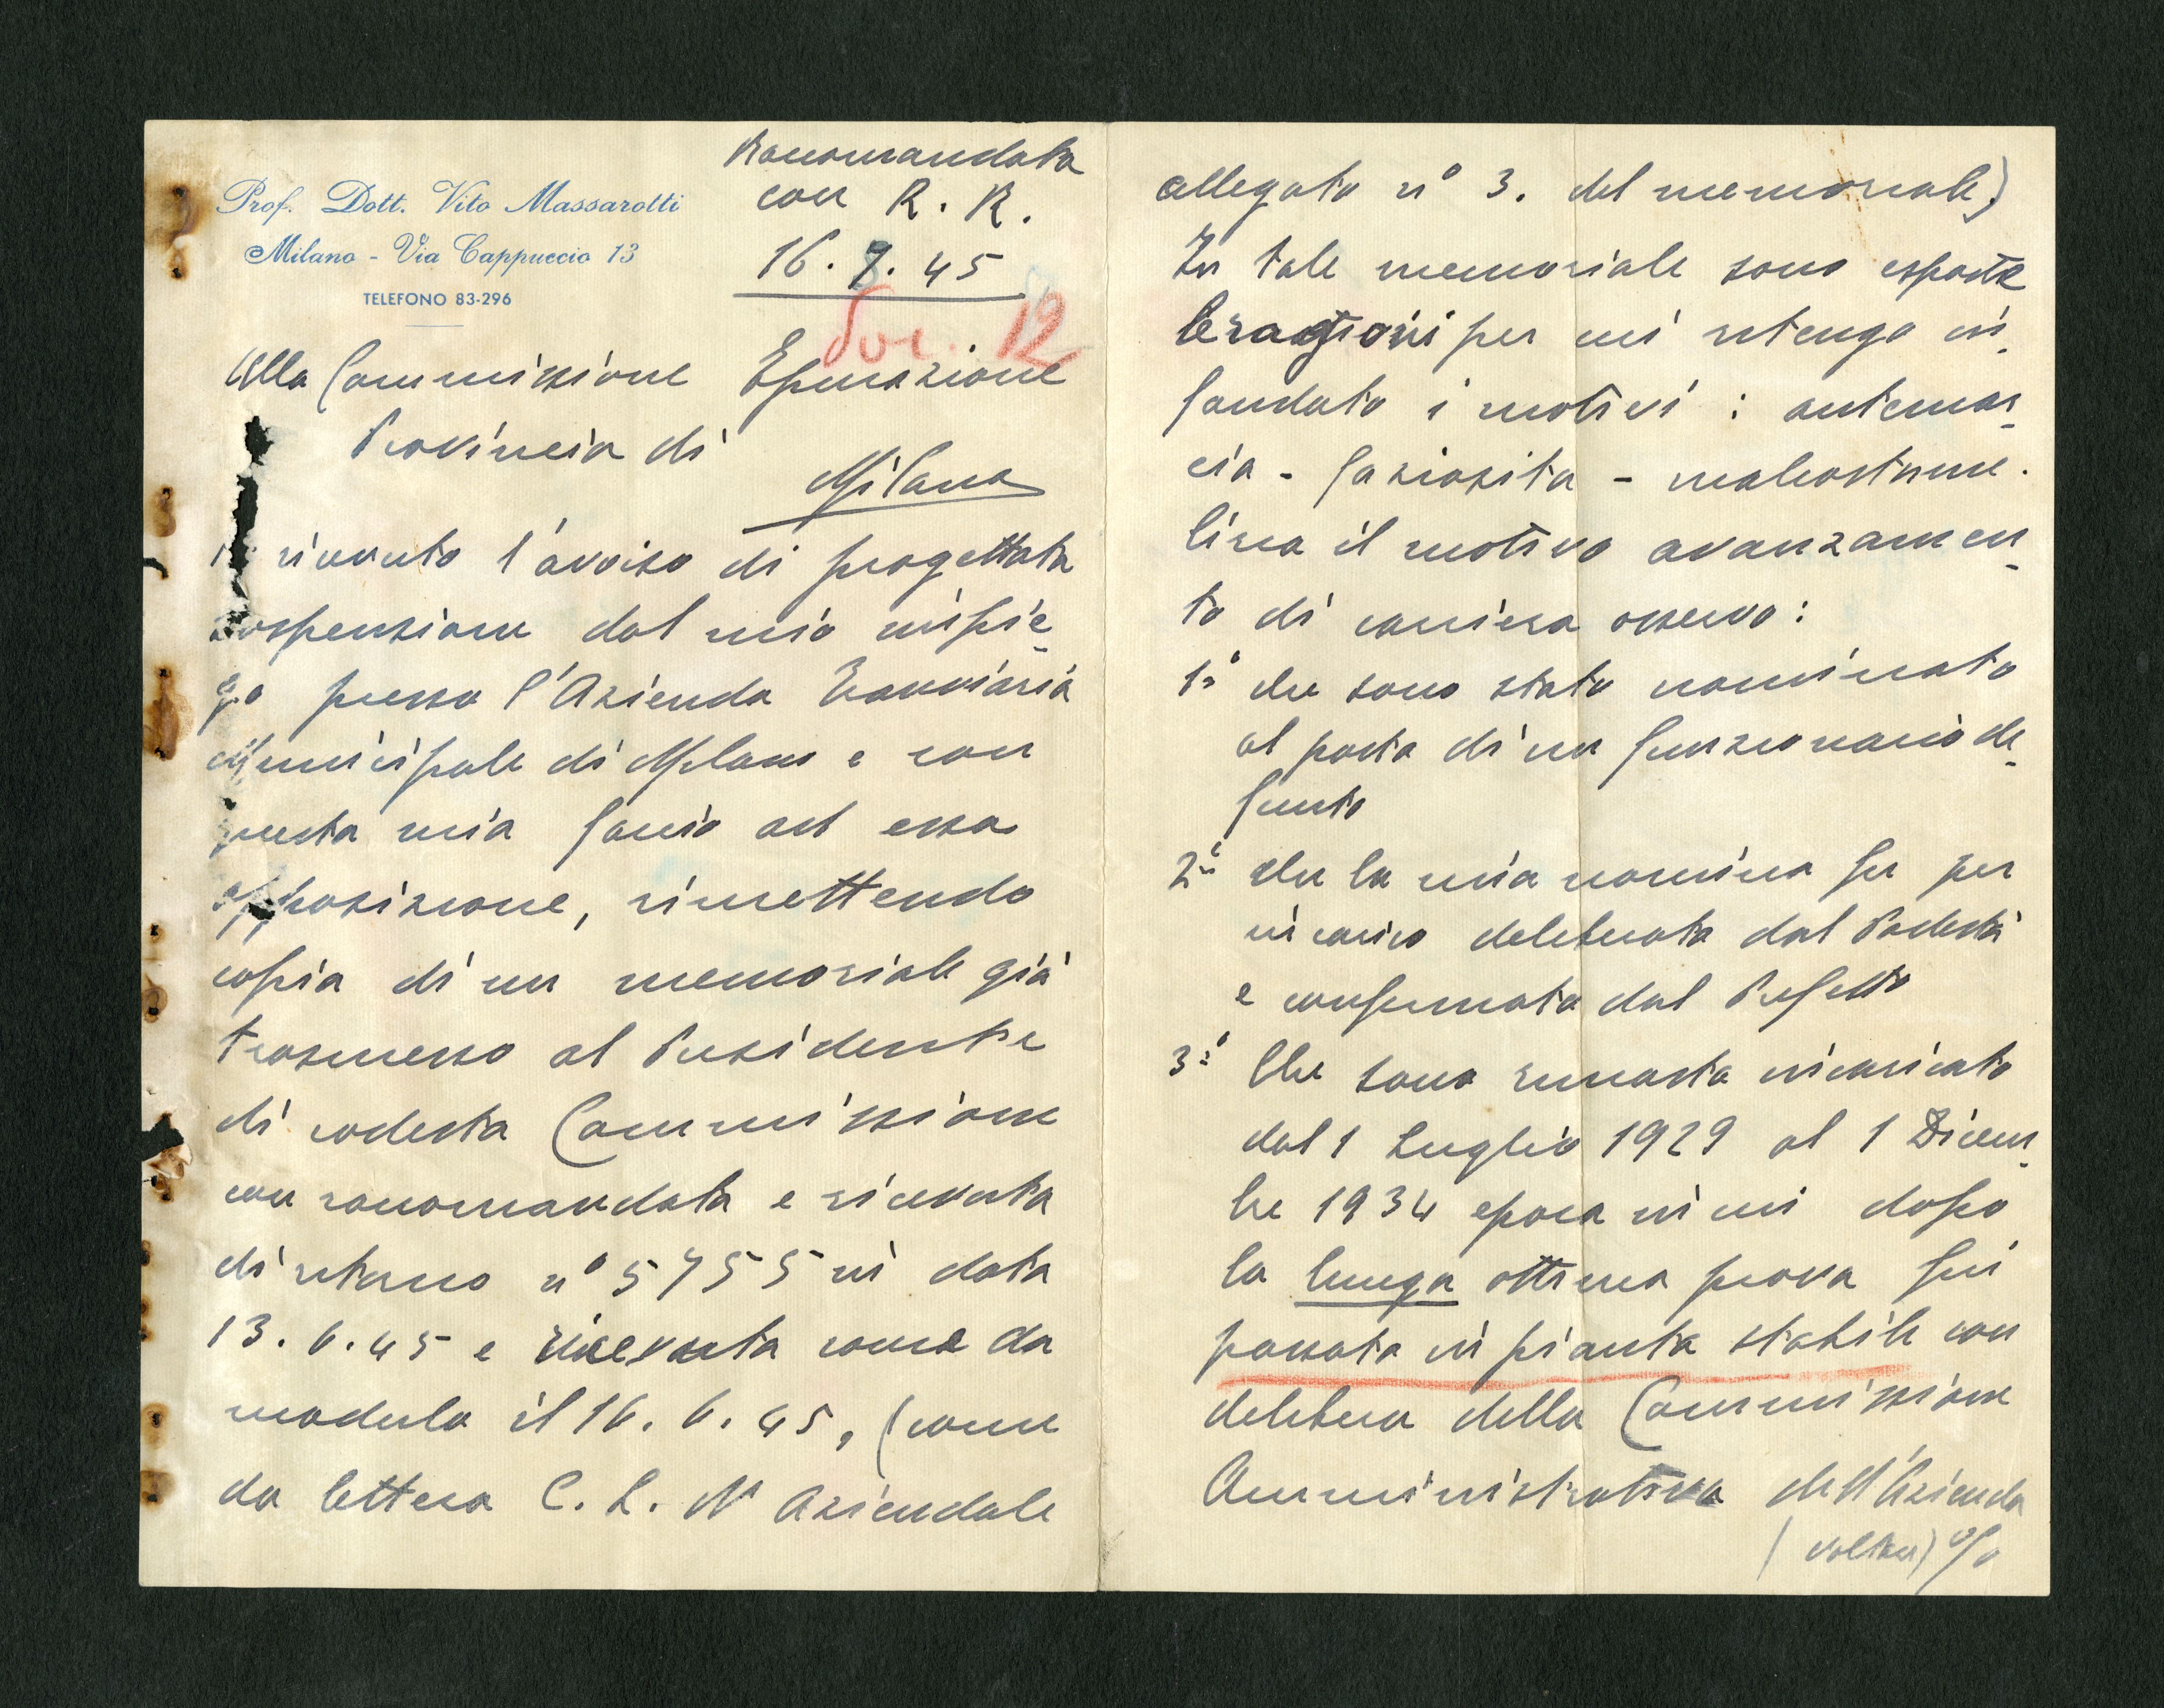 Prof. Dott. Vito Massarotti
Milano - Via Cappuccio 13
TELEFONO 83-296
Raccomandata
con R. R.
16. 7. 45
Doc. 12
Alla Commissione Epurazione
Provincia di
Milano
ricevuto l'avviso di progettata
sospensione dal mio impie-
go presso l'Azienda Tranviaria
Municipale di Milano e con
questa mia faccio ad essa
opposizione, rimettendo
copia di un memoriale già
trasmesso al Presidente
di codesta Commissione
con raccomandata e ricevuta
di ritorno n° 5755 in data
13. 6. 45 e ricevuta come da
modulo il 16. 6. 45, (come
da lettera C. L. N. Aziendale
allegato n° 3. del memoriale)
In tale memoriale sono esposte
le ragioni per cui ritengo in-
fondato i motivi : antemar-
cia - faziosità - malcostume.
Circa il motivo avanzamen-
to di carriera osservo:
1° che sono stato nominato
al posto di un funzionario de-
funto
2° che la mia nomina fu per
incarico deliberata dal Podestà
e confermata dal Prefetto
3° Che sono rimasto incaricato
dal 1 Luglio 1929 al 1 Dicem-
bre 1934 epoca in cui dopo
la lunga ottima prova fui
passato in pianta stabile con
delibera della Commissione
Amministrativa dell'Azienda
(voltare) %